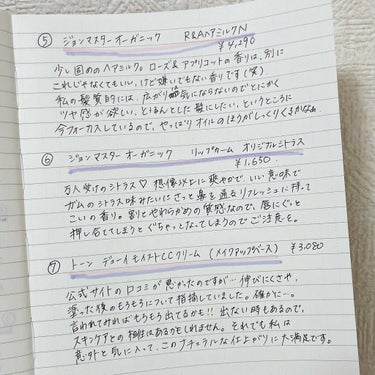 ⑤ ジョンマスターオーガニック R&Aヘアミルク N
¥4,290
少し固めのヘアミルク。ローズ&アプリコットの香りは、別に
これじゃなくてもいい、けど嫌いでもない香りです(笑)
私の髪質的には、広がり気にならないのでとにかく
ツヤ感が欲しい、とぅるんとした髪にしたい、というところに
今フォーカスしているので、やっぱりオイルのほうがしっくりくるかなぁ。
⑥ ジョンマスターオーガニック リップカーム オリジナルシトラス
¥1,650
万人受けのシトラス♡ 想像以上に爽やかで、いい意味で
ガムのシトラス味みたいにさっと鼻を通るリフレッシュに持って
こいの香り。割とやわらかめの質感なので、唇にぐっと
押し当ててしまうとぐちゃっとなってしまうのでご注意を。
⑦ トーン デューイ モイスト CCクリーム (メイクアップベース) ¥3,080
公式サイトの口コミが悪かったのですが…伸びにくさや、
塗った後のもろもろについて指摘していました。確かに…。
言われてみればもろもろ出てるかも!! 出ない時もあるので、
スキンケアとの相性はあるかもしれません。それでも私は
意外と気に入って、このナチュラルな仕上がりに大満足です。